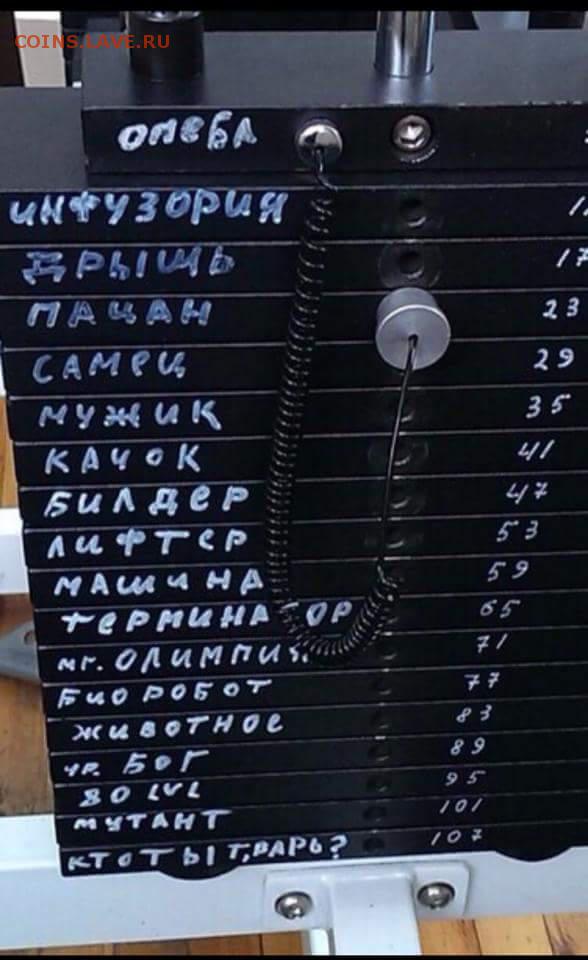 COINS.LAVE.RU
ОМЕБА
ИНФУЗОРИЯ
ДРЫЩЬ 17
ПАЦАН 23
САМЕЦ 29
МУЖИК 35
КАЧОК 41
БИЛДЕР 47
ЛИФТЕР 53
МАШИНА 59
ТЕРМИНАТОР 65
мг. ОЛИМПИЯ 71
БИОРОБОТ 77
ЖИВОТНОЕ 83
ур. БОГ 89
80 LVL 95
МУТАНТ 101
КТО ТЫ Т,ВАРЬ? 107